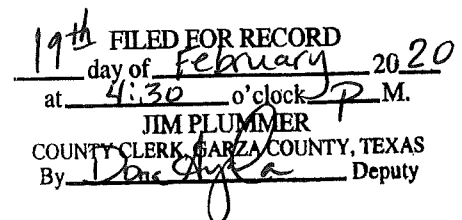 FILED FOR RECORD
19th day of February 2020
at 4:30 o'clock P M.
JIM PLUMMER
COUNTY CLERK, GARZA COUNTY, TEXAS
By Deputy